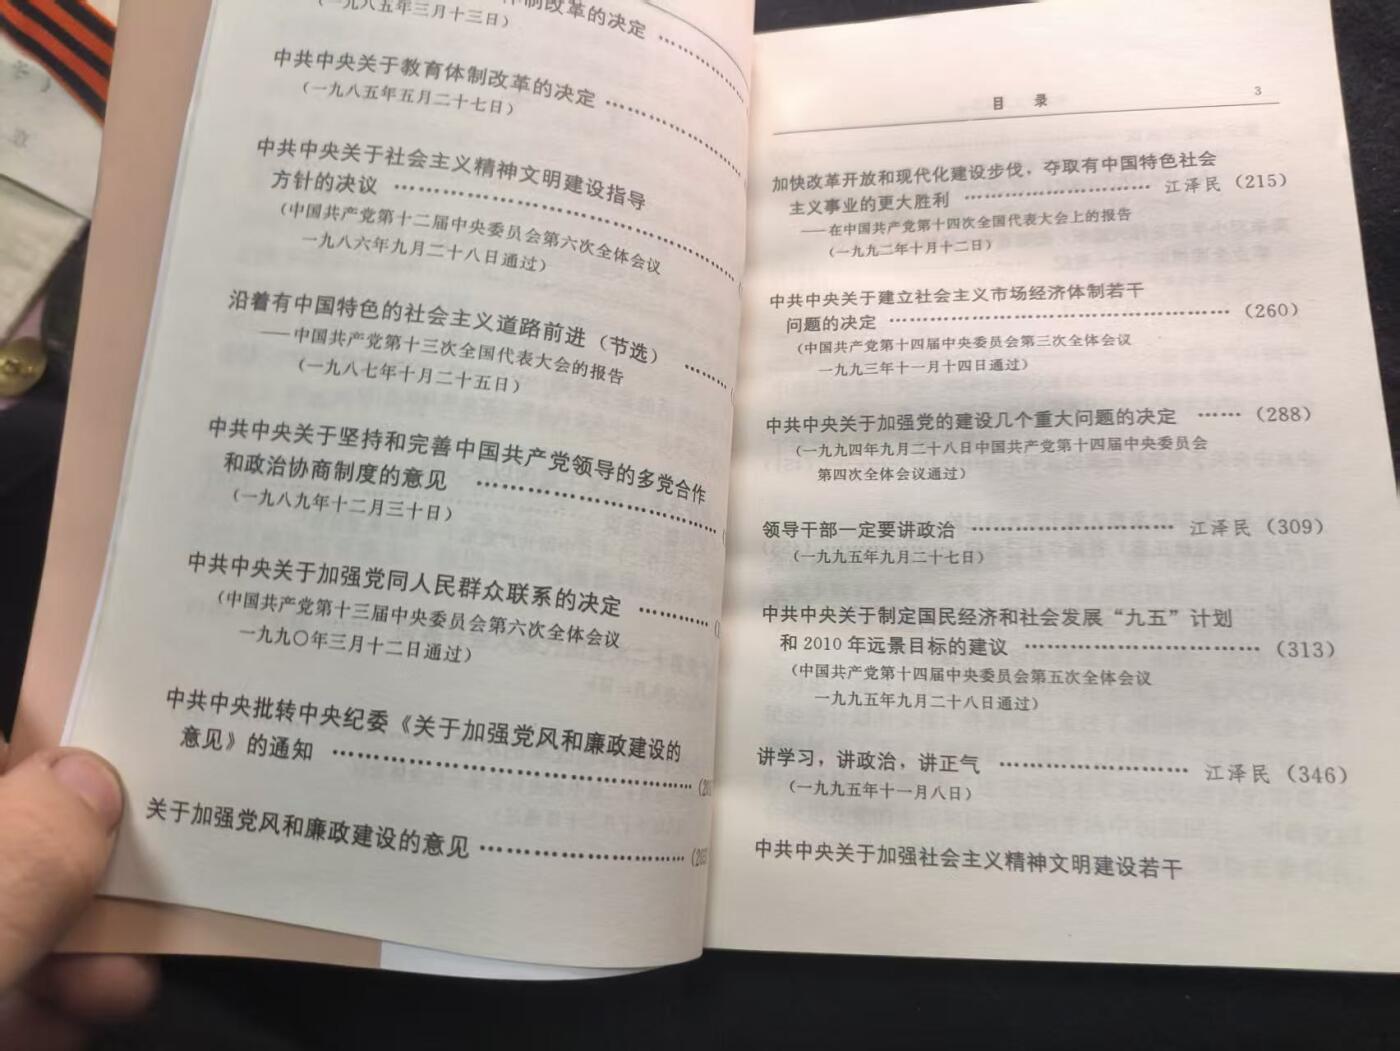 体制改革的决定 ……………
（一九八五年三月十三日）
中共中央关于教育体制改革的决定 ……………
（一九八五年五月二十七日）
中共中央关于社会主义精神文明建设指导
方针的决议 ……………………………
（中国共产党第十二届中央委员会第六次全体会议
一九八六年九月二十八日通过）
沿着有中国特色的社会主义道路前进（节选） ………
——中国共产党第十三次全国代表大会的报告
（一九八七年十月二十五日）
中共中央关于坚持和完善中国共产党领导的多党合作
和政治协商制度的意见 ……………………
（一九八九年十二月三十日）
中共中央关于加强党同人民群众联系的决定 ………
（中国共产党第十三届中央委员会第六次全体会议
一九九〇年三月十二日通过）
中共中央批转中央纪委《关于加强党风和廉政建设的
意见》的通知 ……………………………
关于加强党风和廉政建设的意见 ……………………
目 录 3
加快改革开放和现代化建设步伐，夺取有中国特色社会
主义事业的更大胜利 …………………… 江泽民（215）
——在中国共产党第十四次全国代表大会上的报告
（一九九二年十月十二日）
中共中央关于建立社会主义市场经济体制若干
问题的决定 …………………………………（260）
（中国共产党第十四届中央委员会第三次全体会议
一九九三年十一月十四日通过）
中共中央关于加强党的建设几个重大问题的决定 ……（288）
（一九九四年九月二十八日中国共产党第十四届中央委员会
第四次全体会议通过）
领导干部一定要讲政治 …………………… 江泽民（309）
（一九九五年九月二十七日）
中共中央关于制定国民经济和社会发展“九五”计划
和2010年远景目标的建议 ………………………（313）
（中国共产党第十四届中央委员会第五次全体会议
一九九五年九月二十八日通过）
讲学习，讲政治，讲正气 …………………… 江泽民（346）
（一九九五年十一月八日）
中共中央关于加强社会主义精神文明建设若干